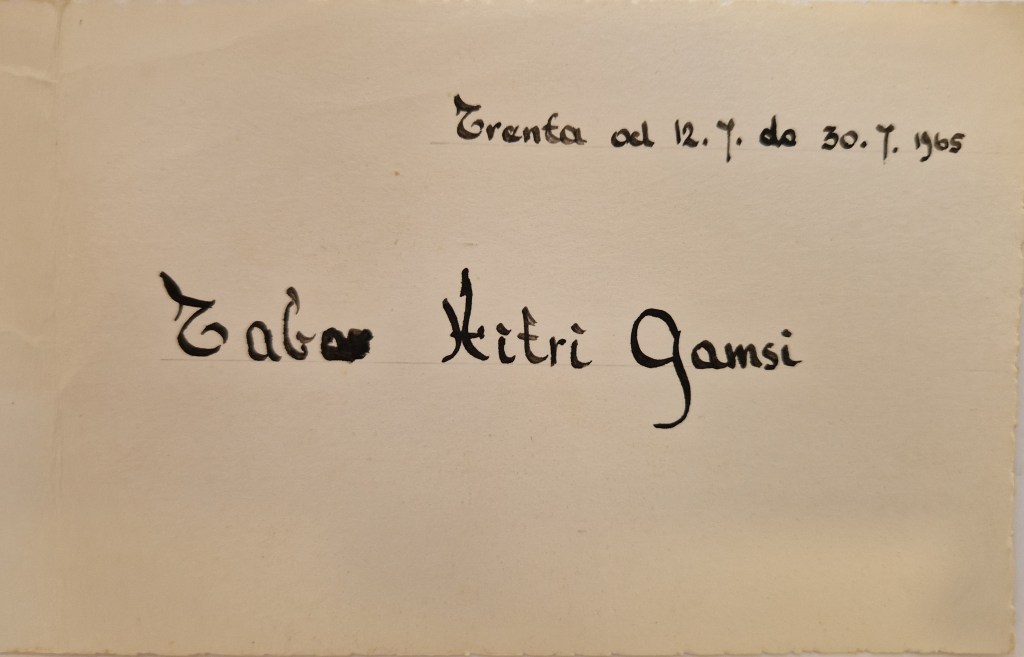 Trenta od 12. 7. do 30. 7. 1965
Tabor Hitri Gamsi